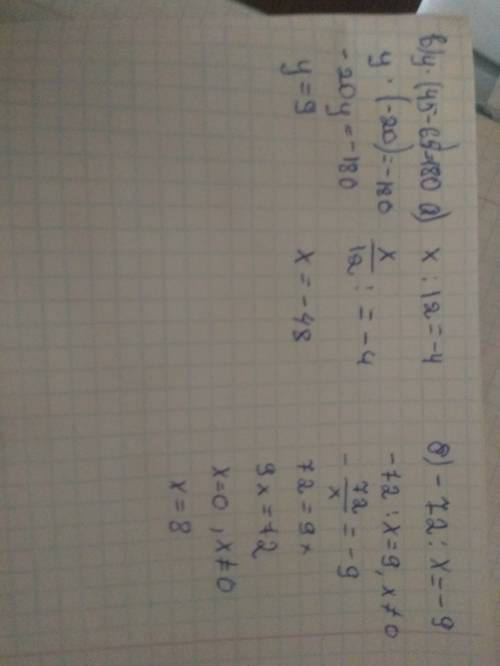 в) y · (45-65)=-180
y · (-20) = -180
-20y = -180
y = 9
а) x : 12 = -4
x/12 : = -4
x = -48
б) - 72 : x = - 9
-72 : x = 9, x ≠ 0
- 72/x = - 9
72 = 9x
9x = 72
x = 0, x ≠ 0
x = 8